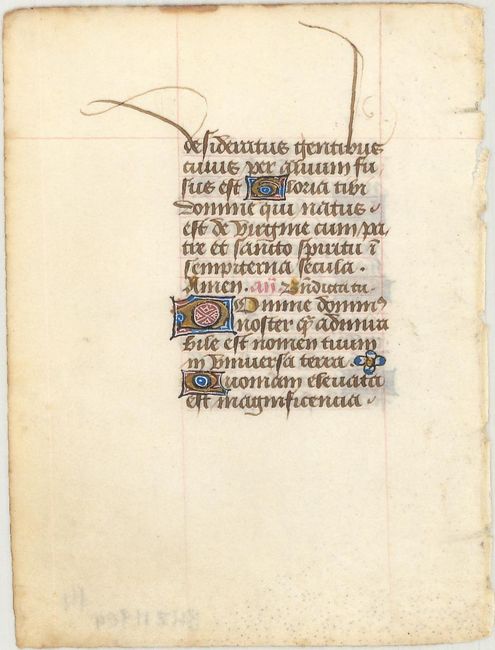 desideratus gentibus
cuius per aluum fu
sus est Gloria tibi
domine qui natus
est de virgine cum pa
tre et sancto spiritu ī
sempiterna secula.
Amen. añ Bn̄dicta tu.
Domine dominꝰ
noster q̄ admira
bile est nomen tuum
in vniuersa terra
Quoniam eleuata
est magnificencia.